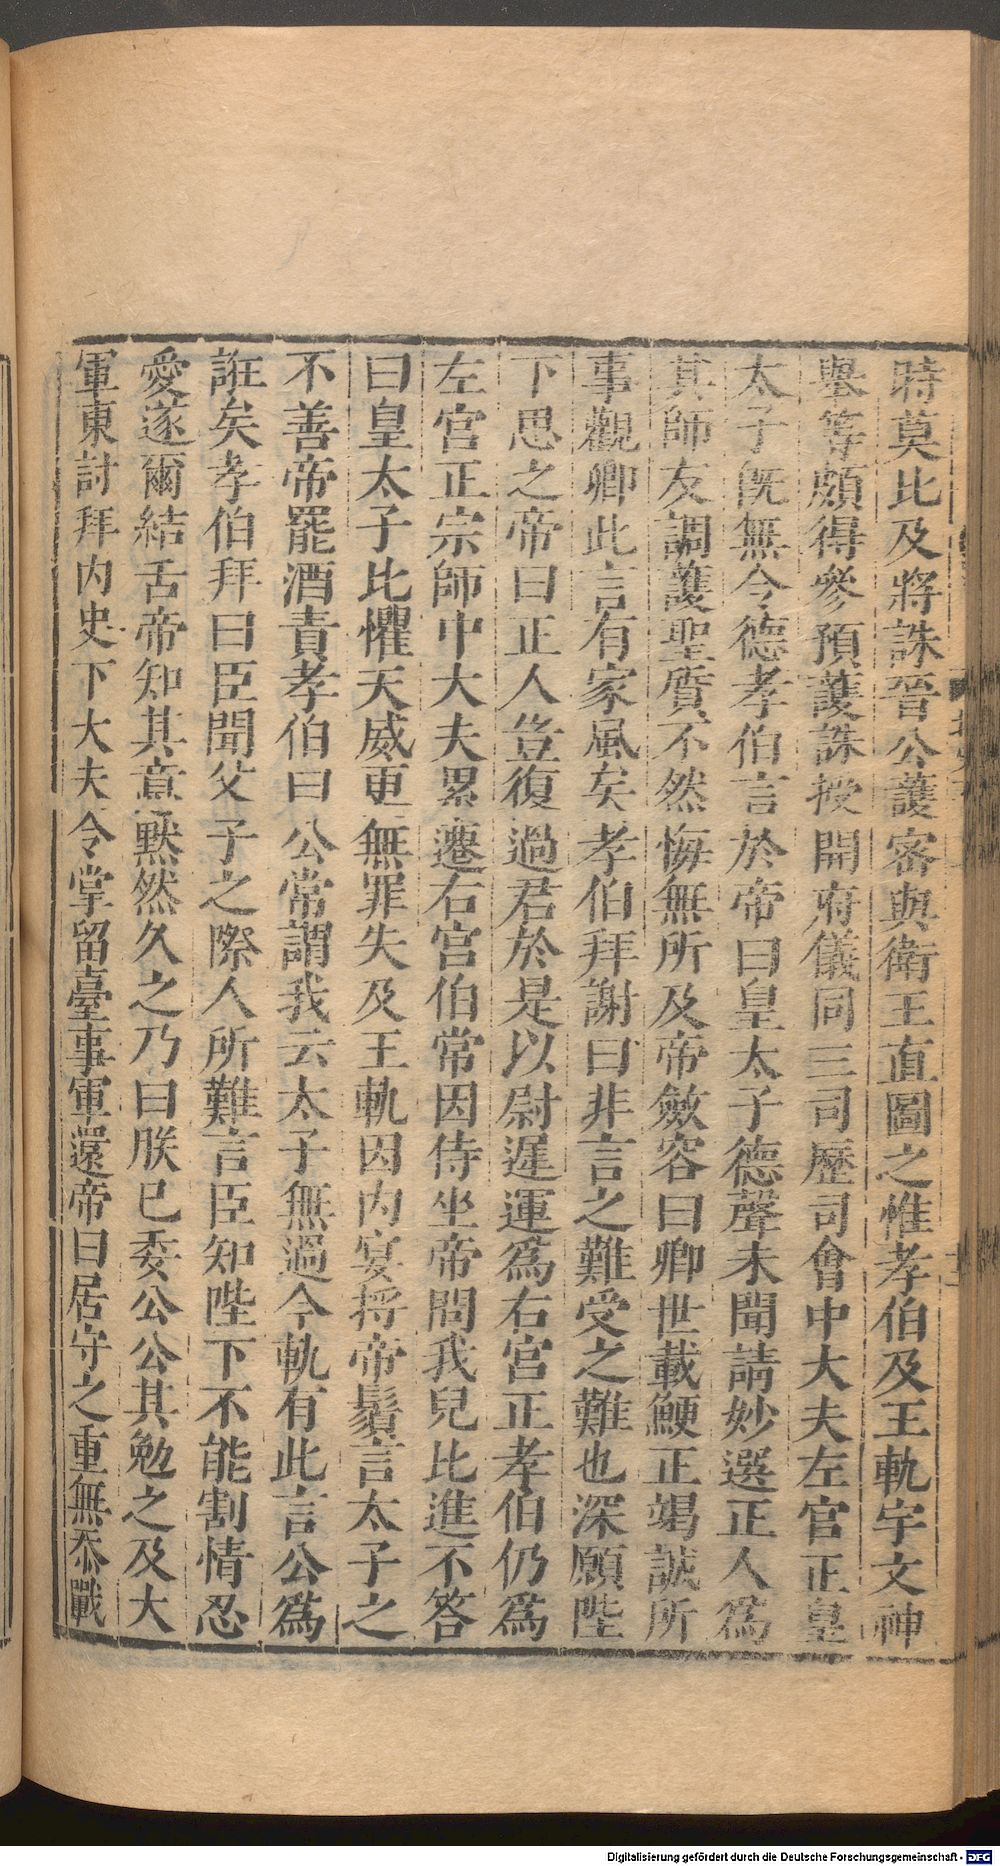 時莫比及將誅晉公護密與衛王直圖之惟孝伯及王軌宇文神
舉等頗得參預護誅授開府儀同三司歷司會中大夫左宮正皇
太子既無令德孝伯言於帝曰皇太子德聲未聞請妙選正人為
其師友調護聖質不然悔無所及帝斂容曰卿世載鯁正竭誠所
事觀卿此言有家風矣孝伯拜謝曰非言之難受之難也深願陛
下思之帝曰正人豈復過君於是以尉遲運為右宮正孝伯仍為
左宮正宗師中大夫累遷右宮伯常因侍坐帝問我兒比進不答
曰皇太子比懼天威更無罪失及王軌因內宴捋帝鬚言太子之
不善帝罷酒責孝伯曰公常謂我云太子無過今軌有此言公為
誑矣孝伯拜曰臣聞父子之際人所難言臣知陛下不能割情忍
愛遂爾結舌帝知其意默然久之乃曰朕已委公公其勉之及大
軍東討拜內史下大夫令掌留臺事軍還帝曰居守之重無忝戰
Digitalisierung gefördert durch die Deutsche Forschungsgemeinschaft - DFG